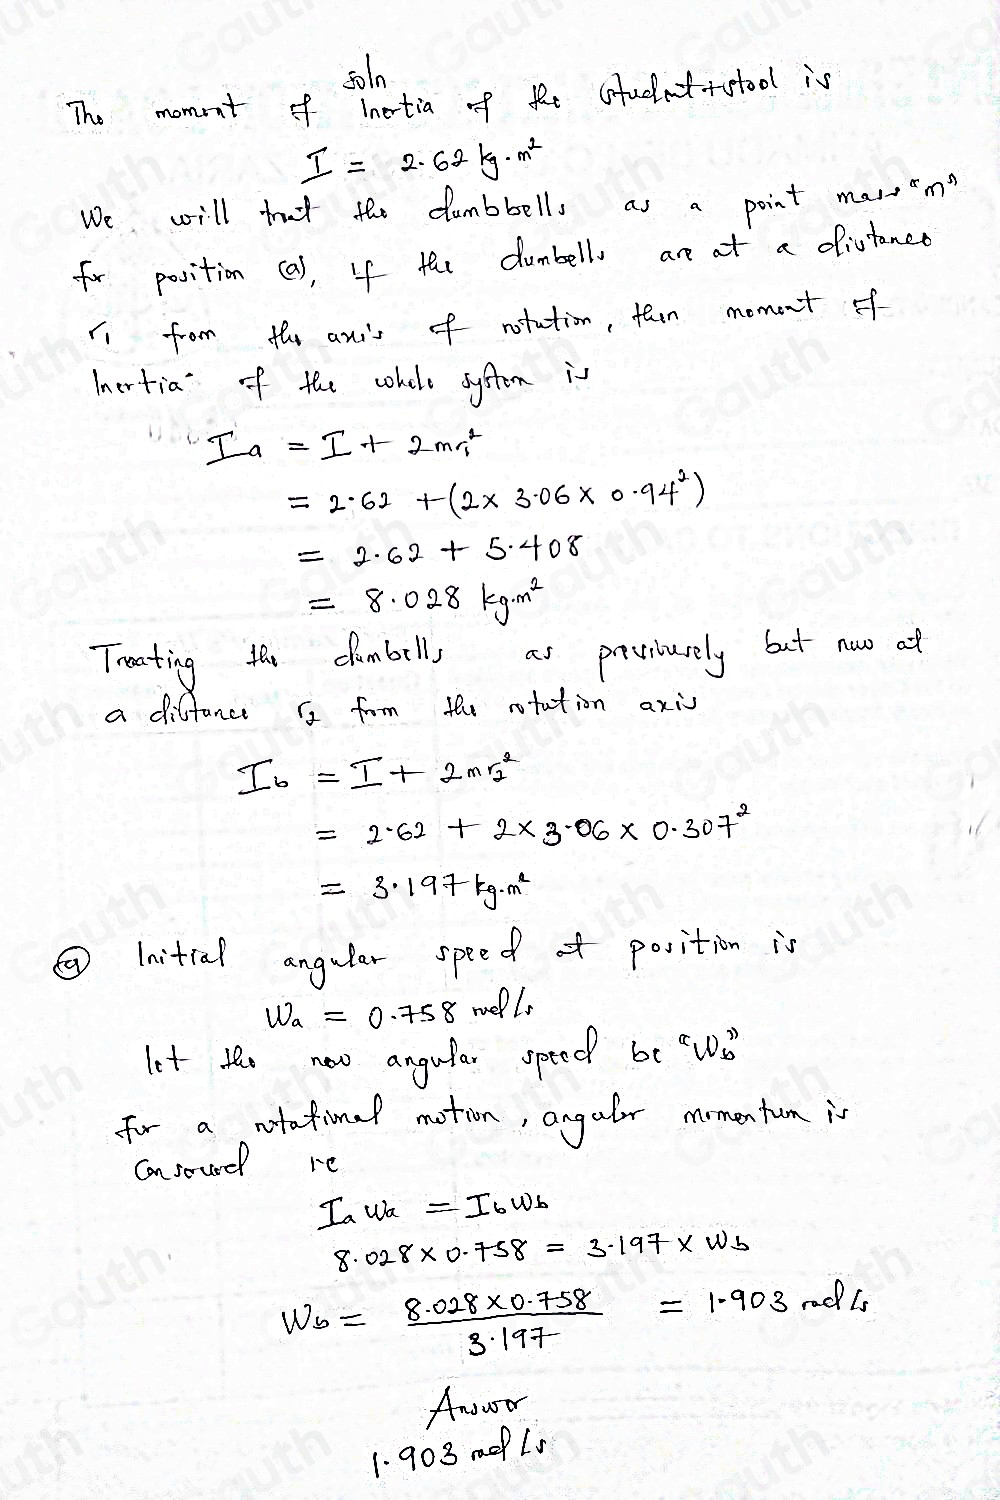 soln
The moment of Inertia of the student+stool is
I = 2.62 kg.m²
We will treat the dumbbells as a point mass "m"
for position (a), if the dumbells are at a distance
r₁ from the axis of rotation, then moment of
Inertia of the whole system is
Ia = I + 2mr₁²
= 2.62 + (2 × 3.06 × 0.94²)
= 2.62 + 5.408
= 8.028 kg.m²
Treating the dumbells as previously but now at
a distance r₂ from the rotation axis
Ib = I + 2mr₂²
= 2.62 + 2 × 3.06 × 0.307²
= 3.197 kg.m²
(a) Initial angular speed at position is
Wa = 0.758 rad/s
let the new angular speed be "Wb"
for a rotational motion, angular momentum is
conserved ie
Ia Wa = Ib Wb
8.028 × 0.758 = 3.197 × Wb
Wb = 8.028 × 0.758 / 3.197 = 1.903 rad/s
Answer
1.903 rad/s